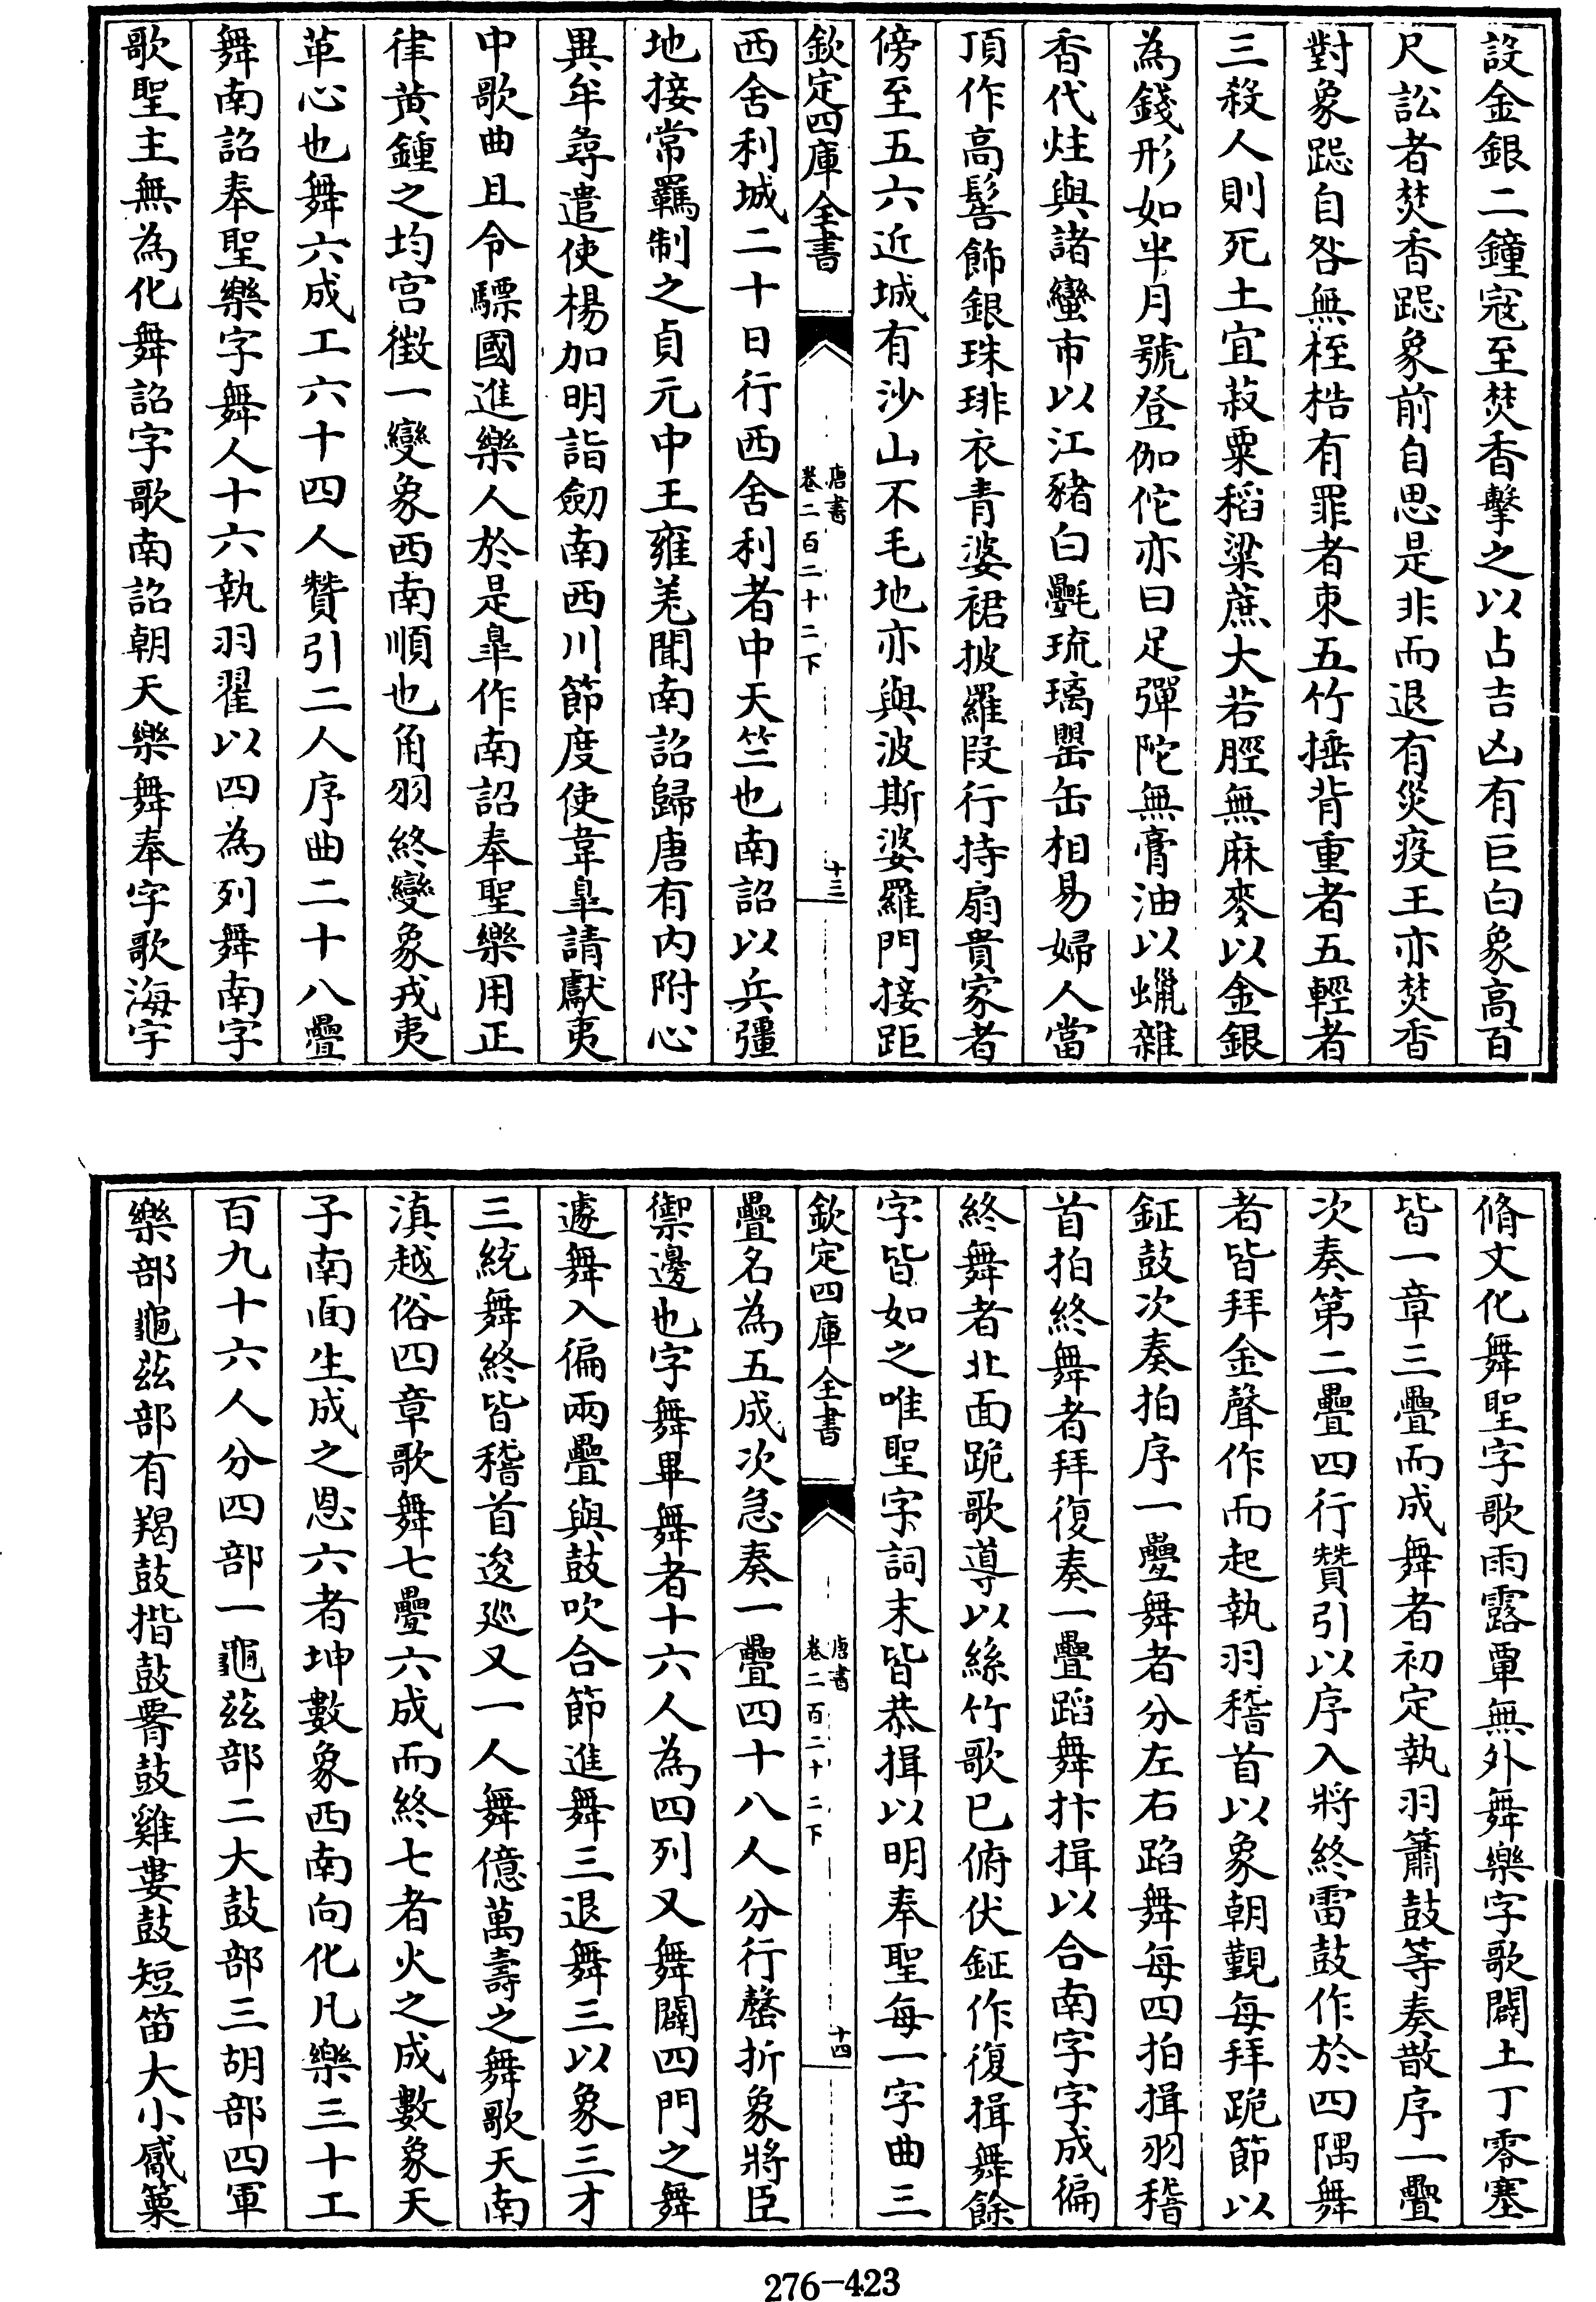 設金銀二鐘寇至焚香擊之以占吉凶有巨白象高百
尺訟者焚香跽象前自思是非而退有災疫王亦焚香
對象跽自咎無桎梏有罪者束五竹捶背重者五輕者
三殺人則死土宜菽粟稻粱蔗大若脛無麻麥以金銀
為錢形如半月號登伽佗亦曰足彈陀無膏油以蠟雜
香代炷與諸蠻市以江豬白㲲琉璃罌缶相易婦人當
頂作高髻飾銀珠琲衣青婆裙披羅段行持扇貴家者
傍至五六近城有沙山不毛地亦與波斯婆羅門接距
欽定四庫全書
唐書
卷二百二十二下
十三
西舍利城二十日行西舍利者中天竺也南詔以兵彊
地接常羈制之貞元中王雍羌聞南詔歸唐有內附心
異牟尋遣使楊加明詣劒南西川節度使韋臯請獻夷
中歌曲且令驃國進樂人於是臯作南詔奉聖樂用正
律黃鍾之均宮徵一變象西南順也角羽終變象戎夷
革心也舞六成工六十四人贊引二人序曲二十八疊
舞南詔奉聖樂字舞人十六執羽翟以四為列舞南字
歌聖主無為化舞詔字歌南詔朝天樂舞奉字歌海宇
脩文化舞聖字歌雨露覃無外舞樂字歌闢土丁零塞
皆一章三疊而成舞者初定執羽簫鼓等奏散序一疊
次奏第二疊四行贊引以序入將終雷鼓作於四隅舞
者皆拜金聲作而起執羽稽首以象朝覲每拜跪節以
鉦鼓次奏拍序一疊舞者分左右蹈舞每四拍揖羽稽
首拍終舞者拜復奏一疊蹈舞抃揖以合南字字成徧
終舞者北面跪歌導以絲竹歌已俯伏鉦作復揖舞餘
字皆如之唯聖字詞末皆恭揖以明奉聖每一字曲三
欽定四庫全書
唐書
卷二百二十二下
十四
疊名為五成次急奏一疊四十八人分行罄折象將臣
禦邊也字舞畢舞者十六人為四列又舞闢四門之舞
遽舞入徧兩疊與鼓吹合節進舞三退舞三以象三才
三統舞終皆稽首逡巡又一人舞億萬壽之舞歌天南
滇越俗四章歌舞七疊六成而終七者火之成數象天
子南面生成之恩六者坤數象西南向化凡樂三十工
百九十六人分四部一龜茲部二大鼓部三胡部四軍
樂部龜茲部有羯鼓揩鼓䚯鼓雞婁鼓短笛大小觱篥
276-423